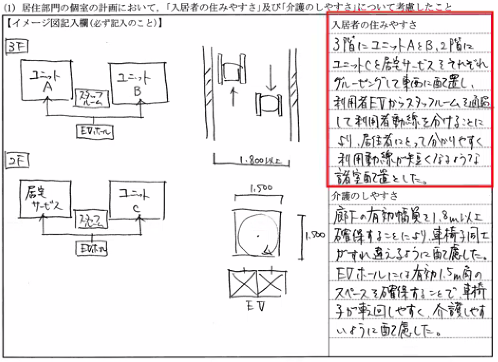 (1) 居住部門の個室の計画において、「入居者の住みやすさ」及び「介護のしやすさ」について考慮したこと
【イメージ図記入欄(必ず記入のこと)】
3F
ユニット
A
スタッフ
ルーム
ユニット
B
EVホール
1.800以上
2F
居宅
サービス
スタッフ
ルーム
ユニット
C
EVホール
1,500
1,500
EV
入居者の住みやすさ
3階にユニットAとB、2階に
ユニットCと居宅サービスをそれぞれ
グルーピングして東西に配置し、
利用者EVからスタッフルームを通過
して利用者動線を分けることに
より、居住者にとって分かりやすく
利用動線が短くなるような
諸室配置とした。
介護のしやすさ
廊下の有効幅員を1.8m以上
確保することにより、車椅子同士
がすれ違えるように配慮した。
EVホールには有効1.5m角の
スペースを確保することで、車椅
子が転回しやすく、介護しやす
いように配慮した。